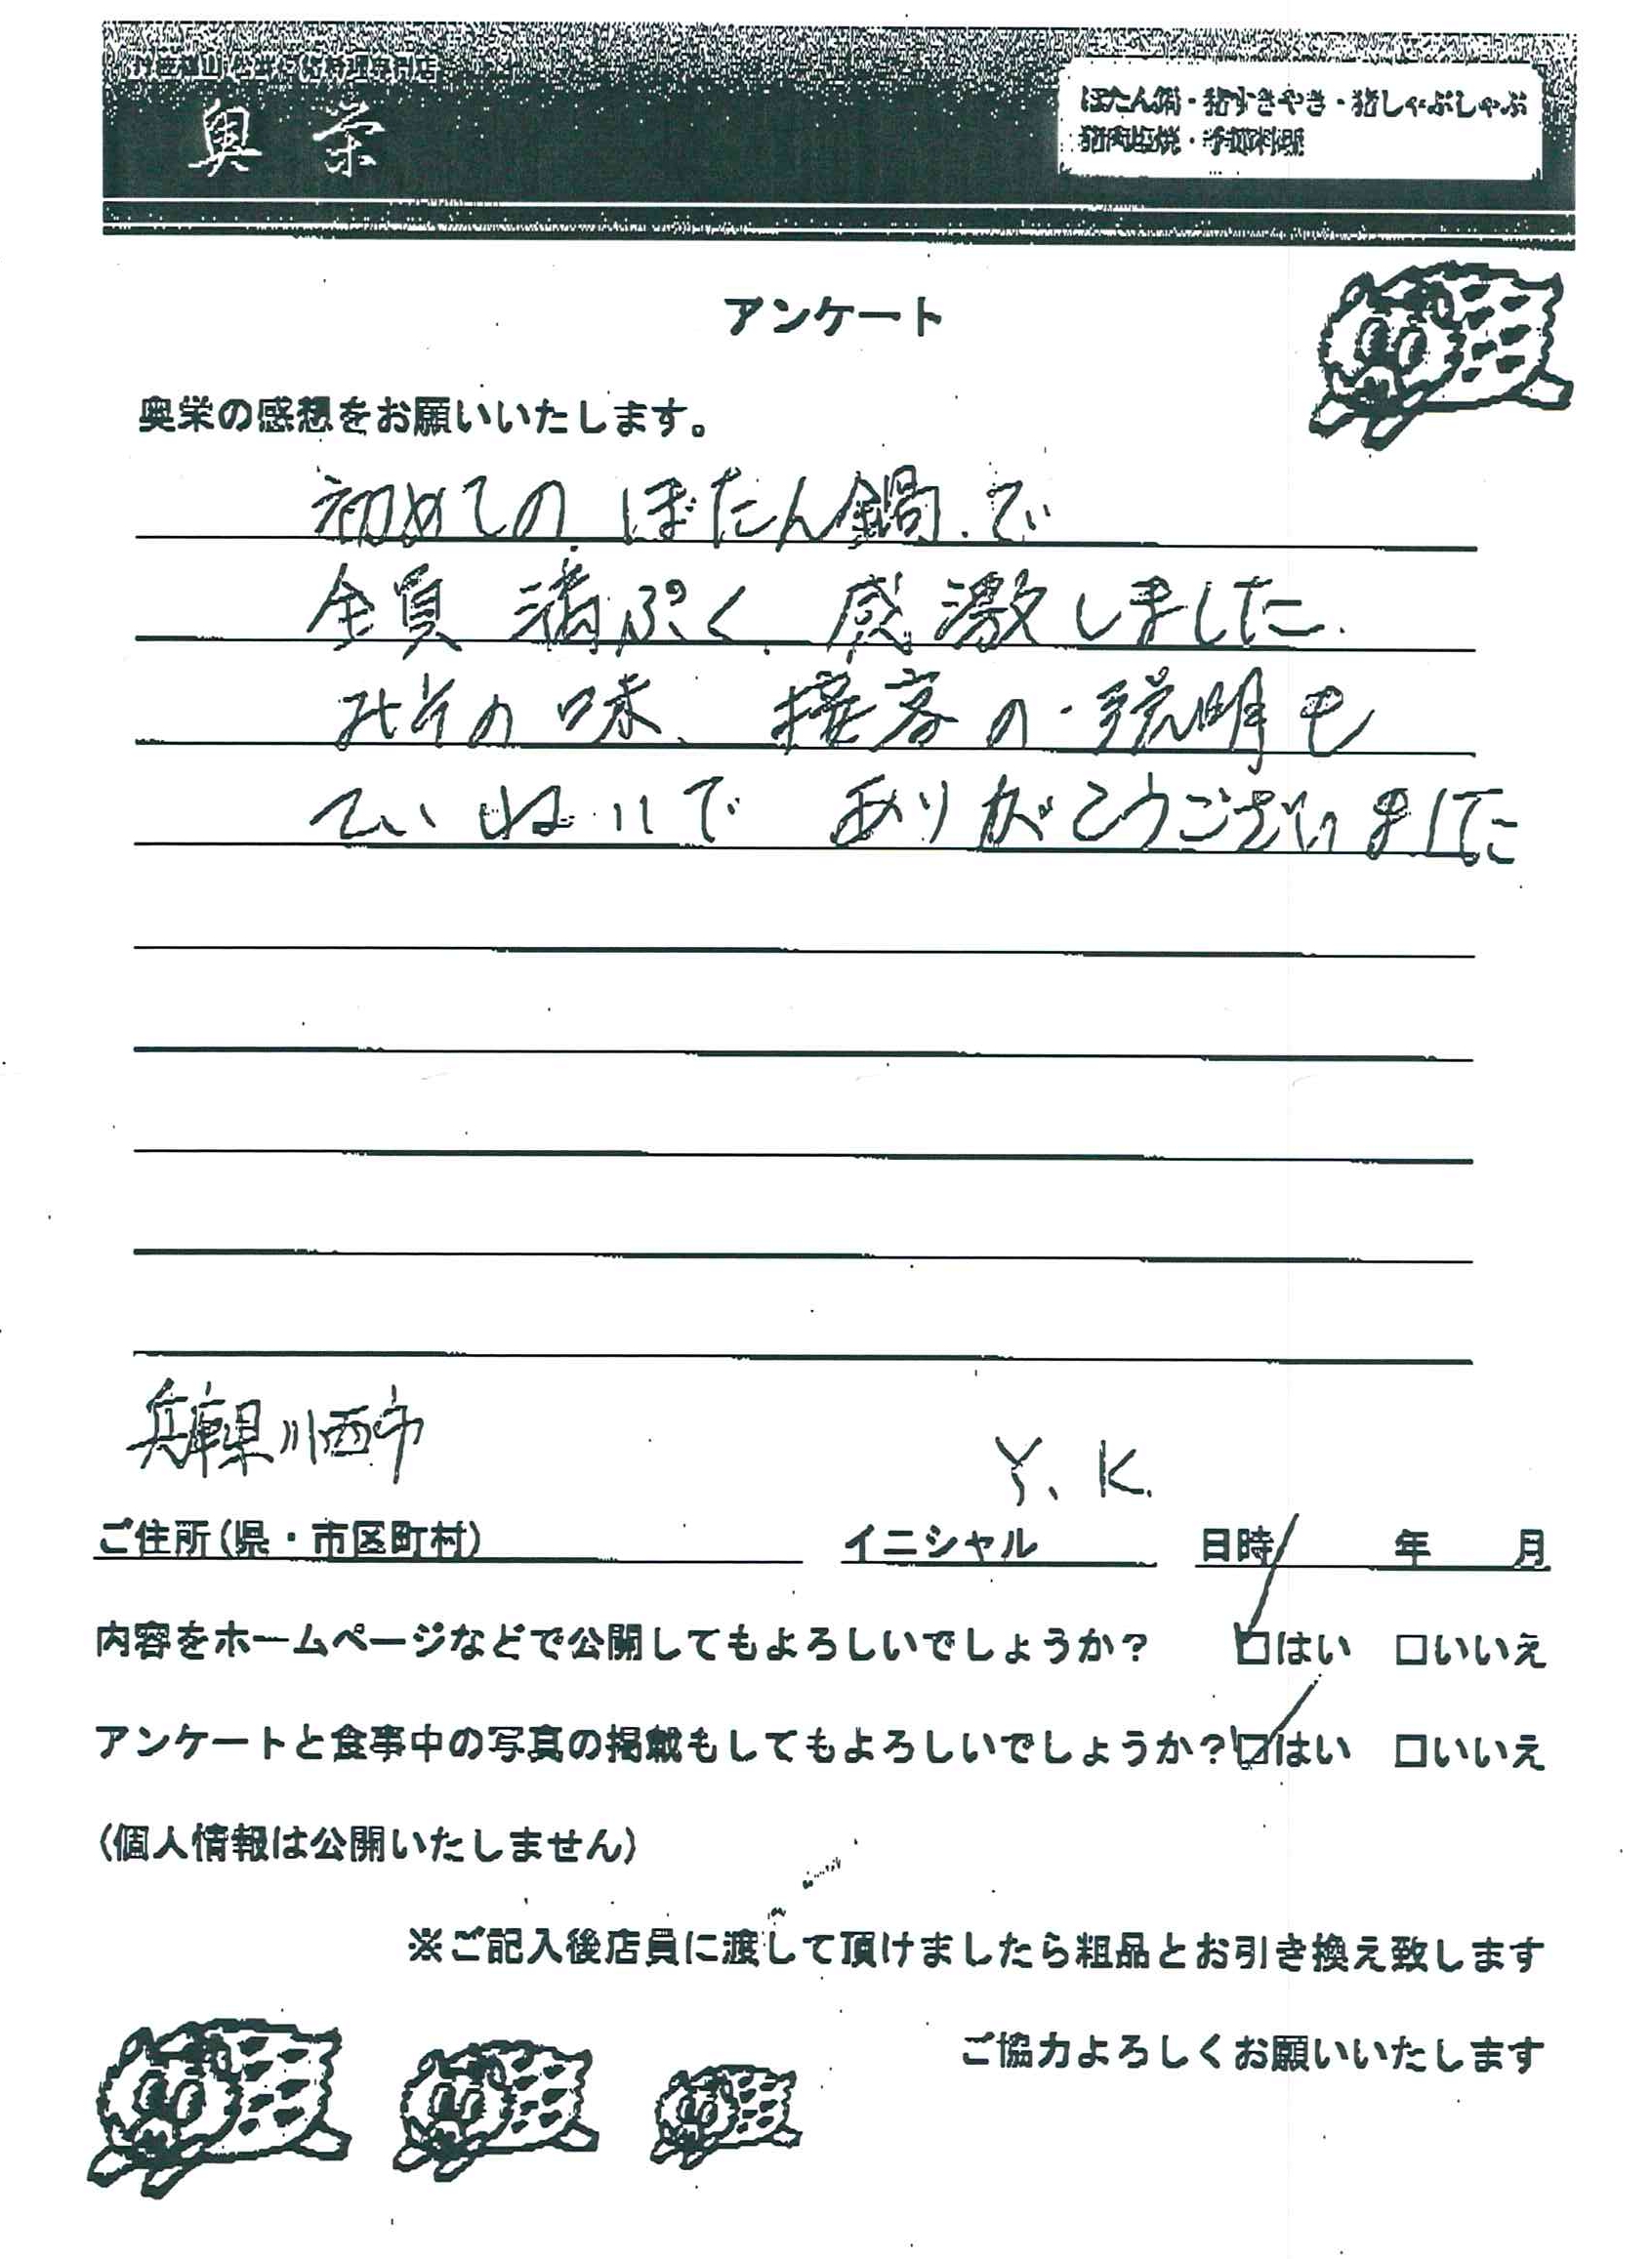 奥栄
ぼたん鍋・猪すきやき・猪しゃぶしゃぶ
アンケート
奥栄の感想をお願いいたします。
初めての ぼたん鍋.で
全員 満ぷく 感激しました.
みその味、接客の説明も
ていねいで ありがとうございました
兵庫県川西市
Y、K.
ご住所(県・市区町村) イニシャル 日時 年 月
内容をホームページなどで公開してもよろしいでしょうか? □はい □いいえ
アンケートと食事中の写真の掲載もしてもよろしいでしょうか?□はい □いいえ
(個人情報は公開いたしません)
※ご記入後店員に渡して頂けましたら粗品とお引き換え致します
ご協力よろしくお願いいたします